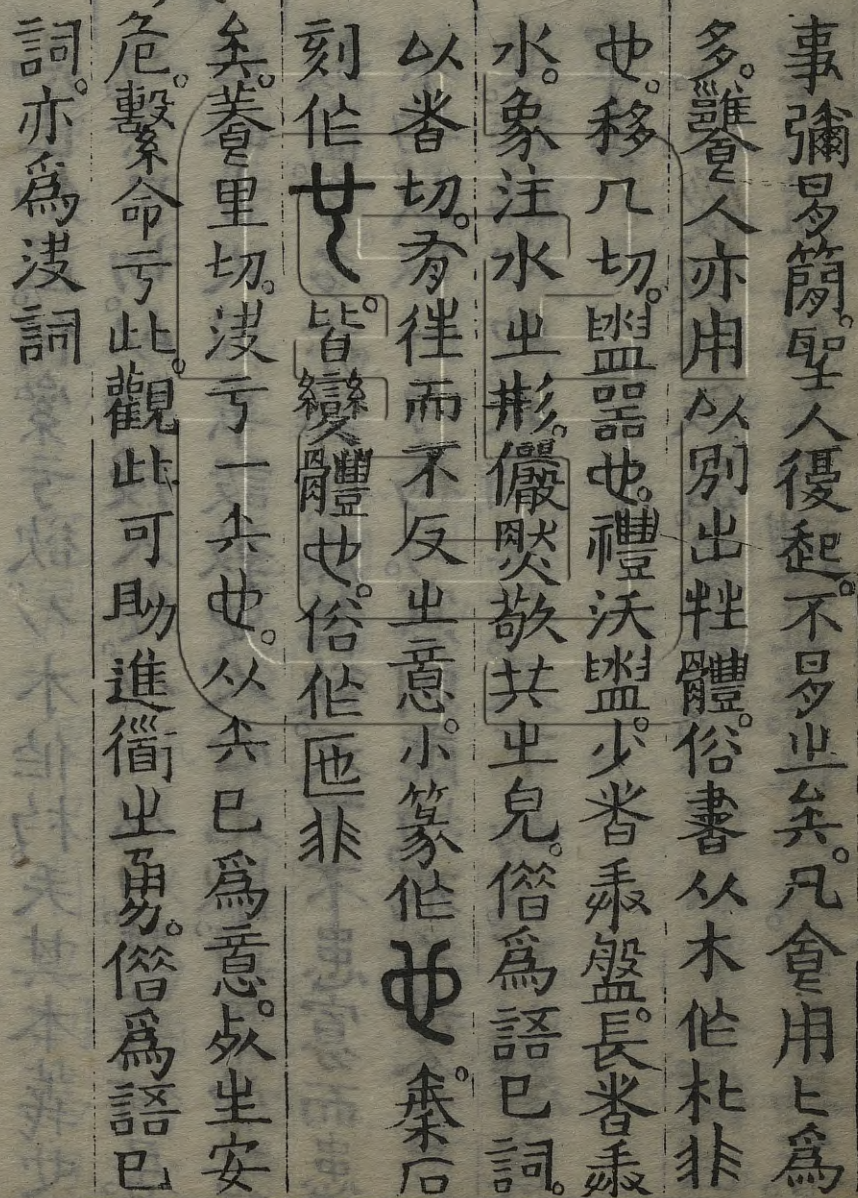 事彌易簡。聖人復起。不易㞢矣。凡食用匕爲
多。饔人亦用以別出牲體。俗書从木作朼非
也。移几切。盥器也。禮沃盥。少者奉盤。長者奉
水。象注水㞢形。儼然敬共㞢皃。借爲語已詞。
以者切。有往而不反㞢意。小篆作也。秦石
刻作。皆變體也。俗作匜非
矣。養里切。決亏一矢也。从矢已爲意。死生安
危。繫命亏此。觀此可助進衜㞢勇。借爲語已
詞。亦爲決詞